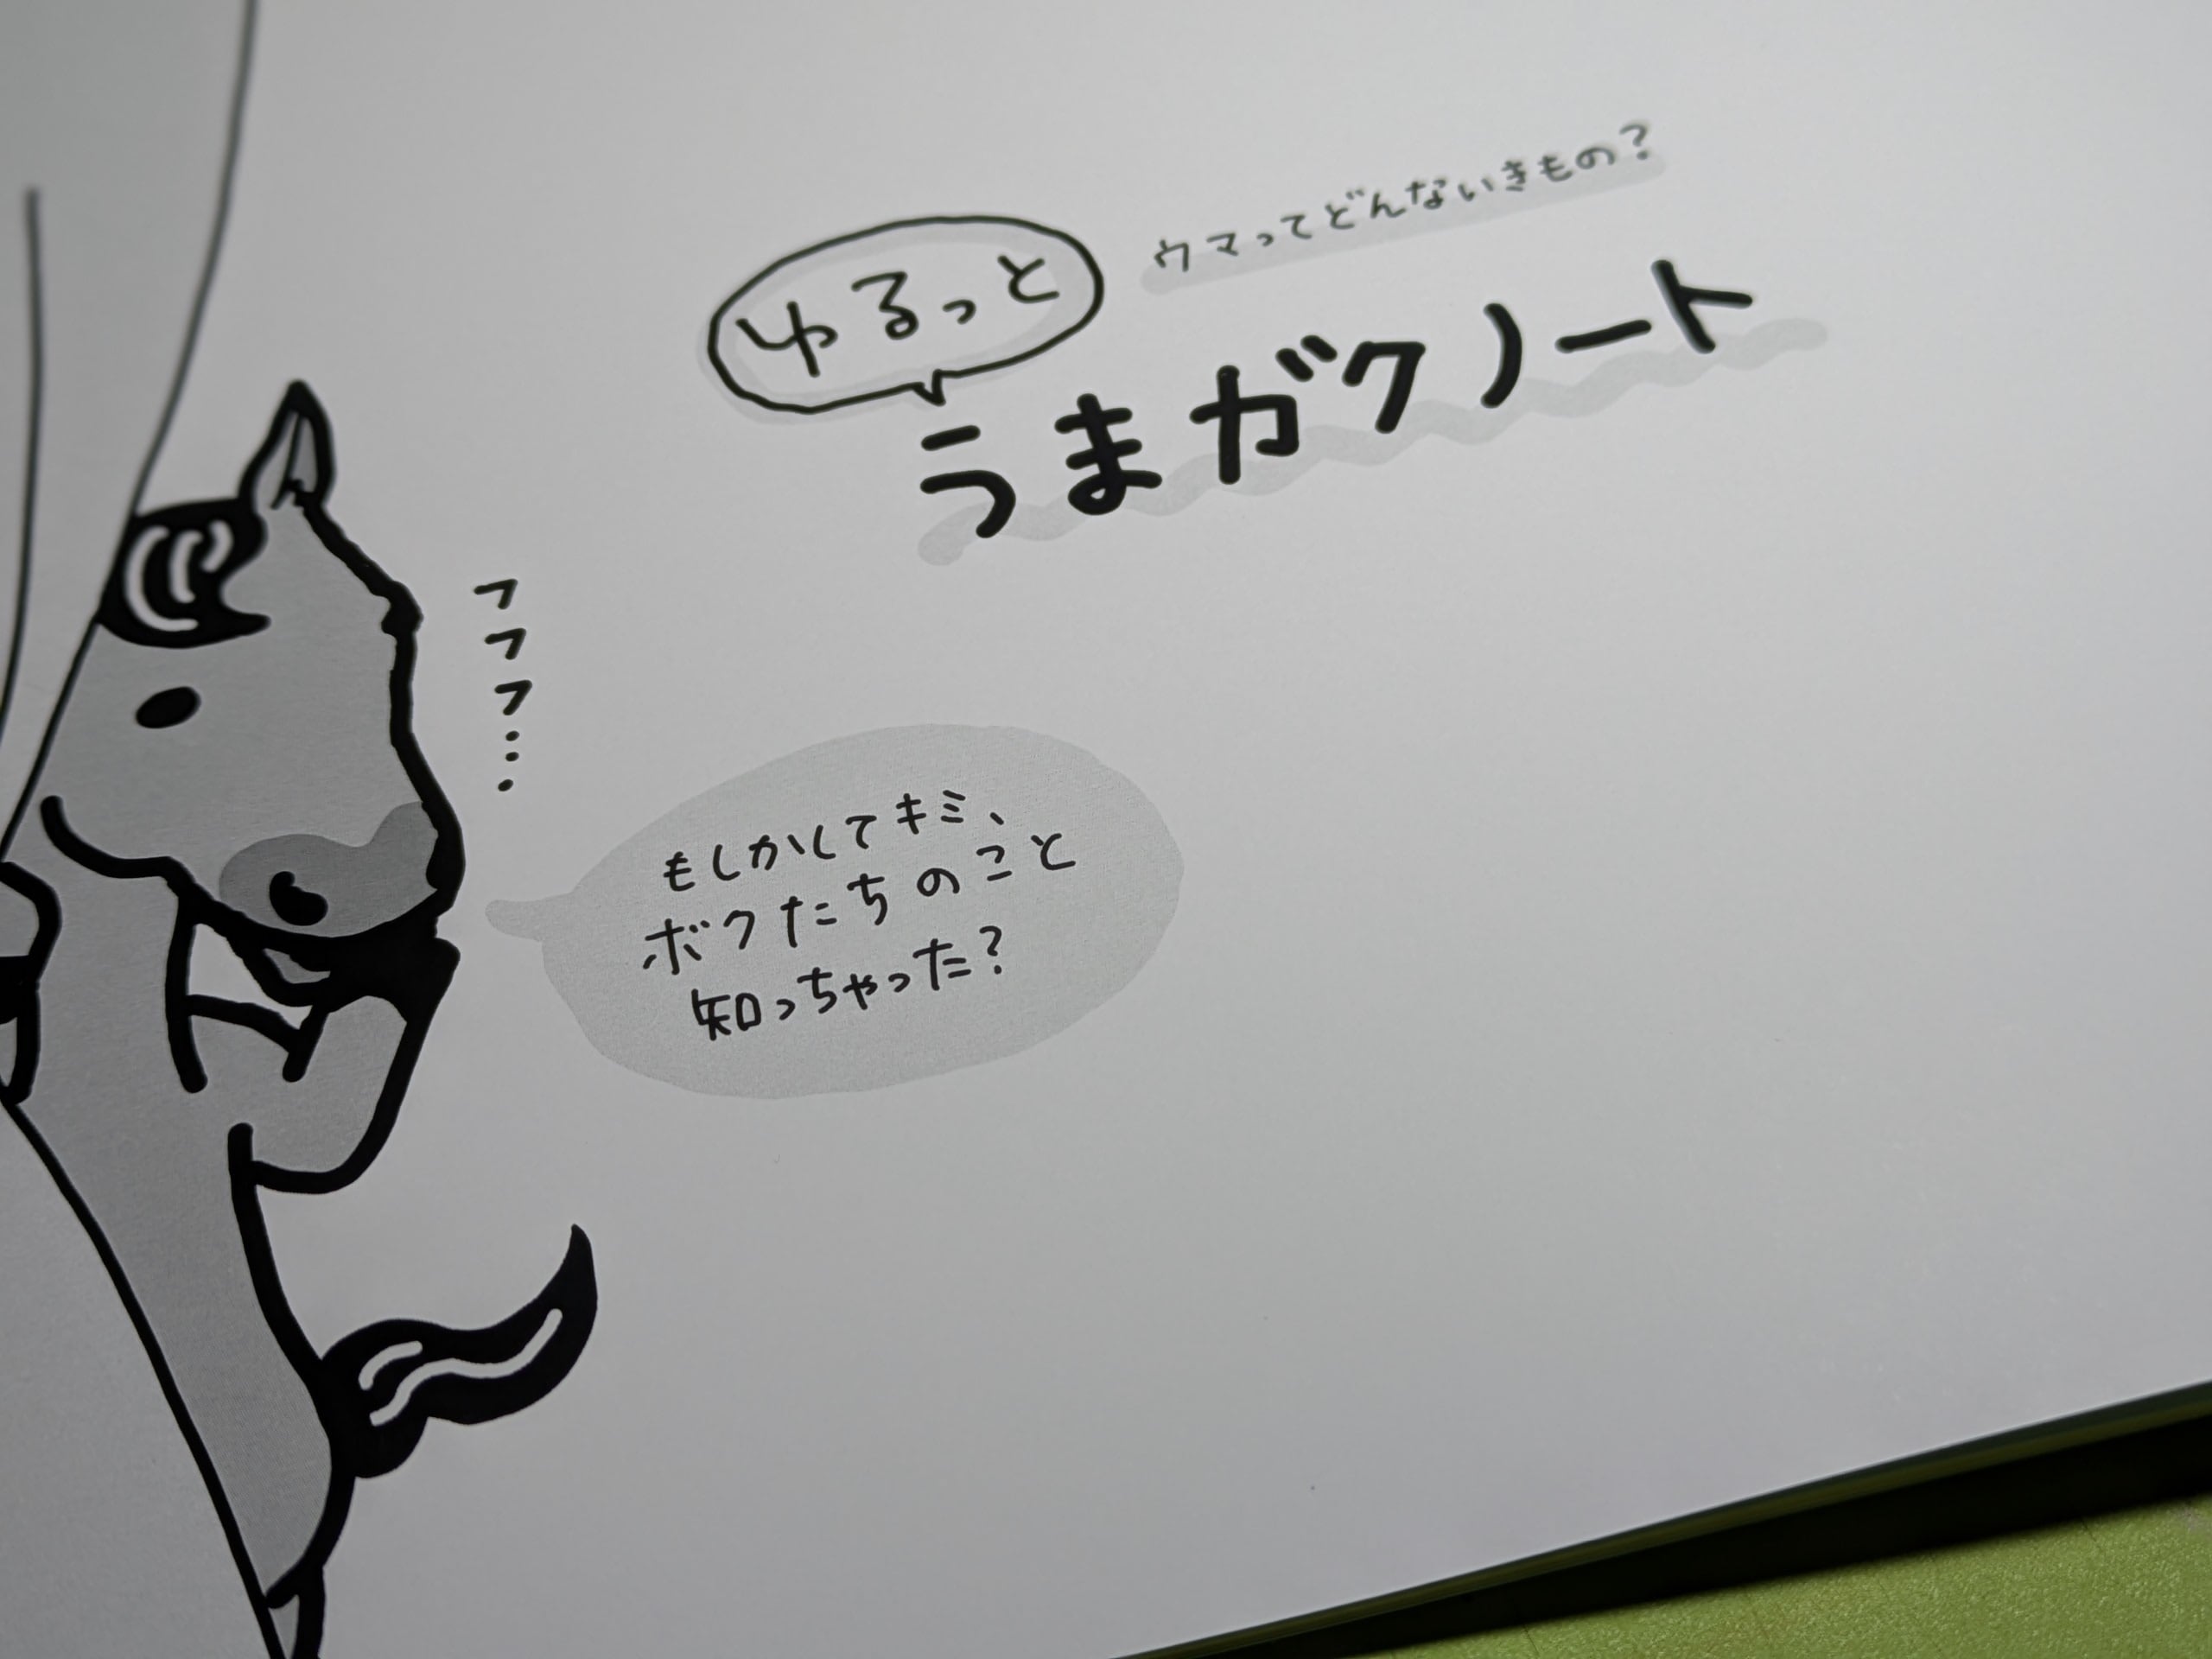 ウマってどんないきもの?
ゆるっと
うまガクノート
フフフ…
もしかしてキミ、
ボクたちのこと
知っちゃった?